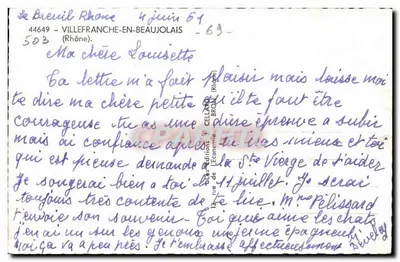 Le Breuil Rhône 4 juin 61
44649 - VILLEFRANCHE-EN-BEAUJOLAIS - 69 -
503 (Rhône).
Ma chère Louisette
Ta lettre m'a fait plaisir mais laisse moi
te dire ma chère petite qu'il te faut être
courageuse tu as une dure épreuve a subir
mais ai confiance après tu vas mieux et toi
qui est pieuse demande a la Ste Vierge de t'aider
Je songerai bien a toi le 11 juillet. Je serai
toujours très contente de te lire. Mme Pélissard
t'envoie son souvenir. Toi qui aime les chats
j'en ai un sur les genoux une jeune épagneul
moi ça va a peu près. Je t'embrasse affectueusement